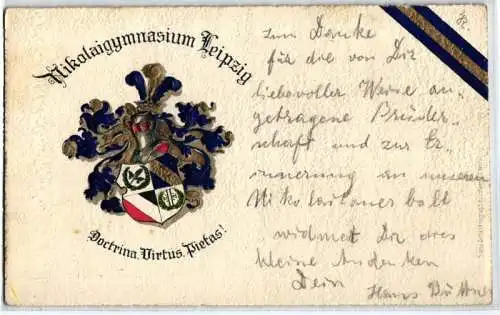 Nikolaigymnasium Leipzig
Doctrina. Virtus. Pietas!
Zum Danke
für die von Dir
liebevoller Weise an-
getragene Brüder-
schaft und zur Er-
innerung an unseren
Nikolaitanerball
widmet Dir dies
kleine Andenken
Dein Hans